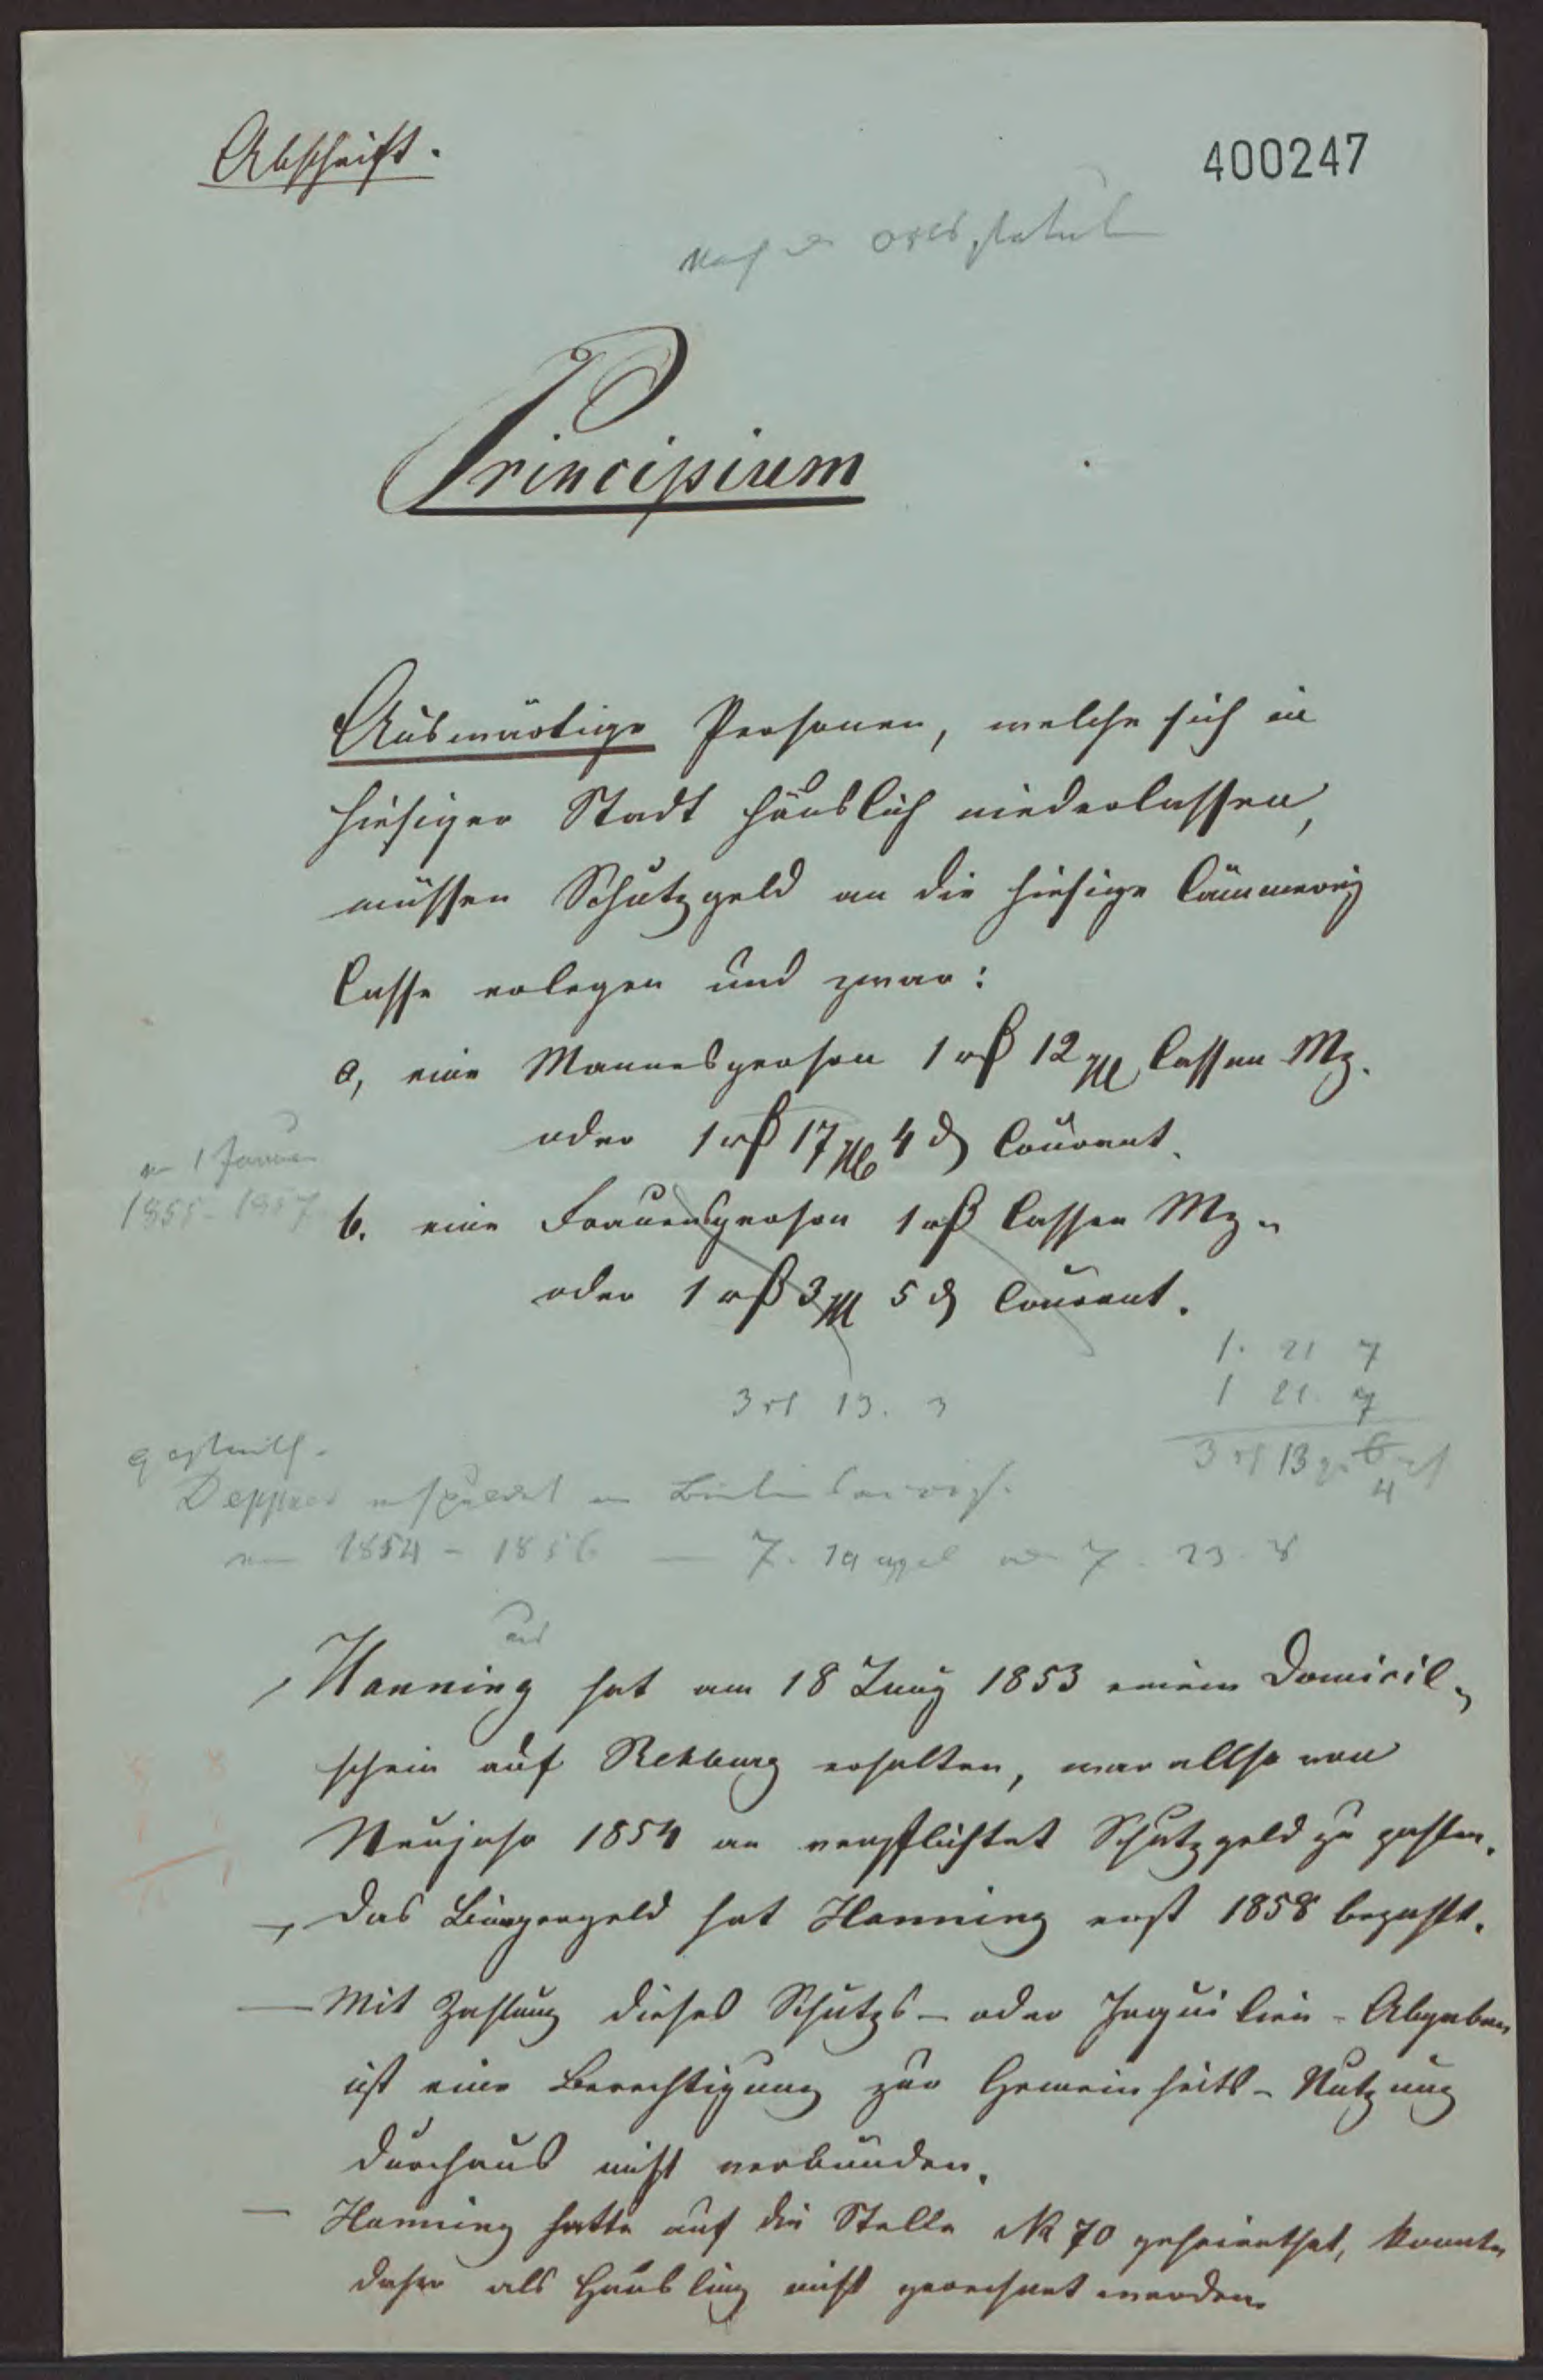 Abschrift.
400247
Nach d. Ortsstatut
Principium
Auswärtige Personen, welche sich in
hiesiger Stadt häuslich niederlassen,
müssen Schutzgeld an die hiesige Cämmerey
Casse erlegen und zwar:
a, eine Mannsperson 1 rß 12 Casſen Mz.
oder 1 rß 17 4 d Courant.
1 Januar
1855-1857
b. eine Frauensperson 1 rß Cassen Mz.
oder 1 rß 3 5 d Courant.
1. 21 7
1 21. 7
3 13. 3
3 13 6
4
Deppner
1854 - 1856 — 7. 7. 23. 8
und
Hanning hat am 18 Juny 1853 einen Domicil-
schein auf Rehburg erhalten, war allso von
Neujahr 1854 an verpflichtet Schutzgeld zu zahlen.
Das Bürgergeld hat Hanning erst 1858 bezahlt.
— Mit Zahlung dieses Schutz- oder Inquilin-Abgaben
ist eine Berechtigung zur Gemeinheits-Nutzung
durchaus nicht verbunden.
— Hanning hatte auf die Stelle № 70 geheirathet, konnte
daher als Häusling nicht gerechnet werden.